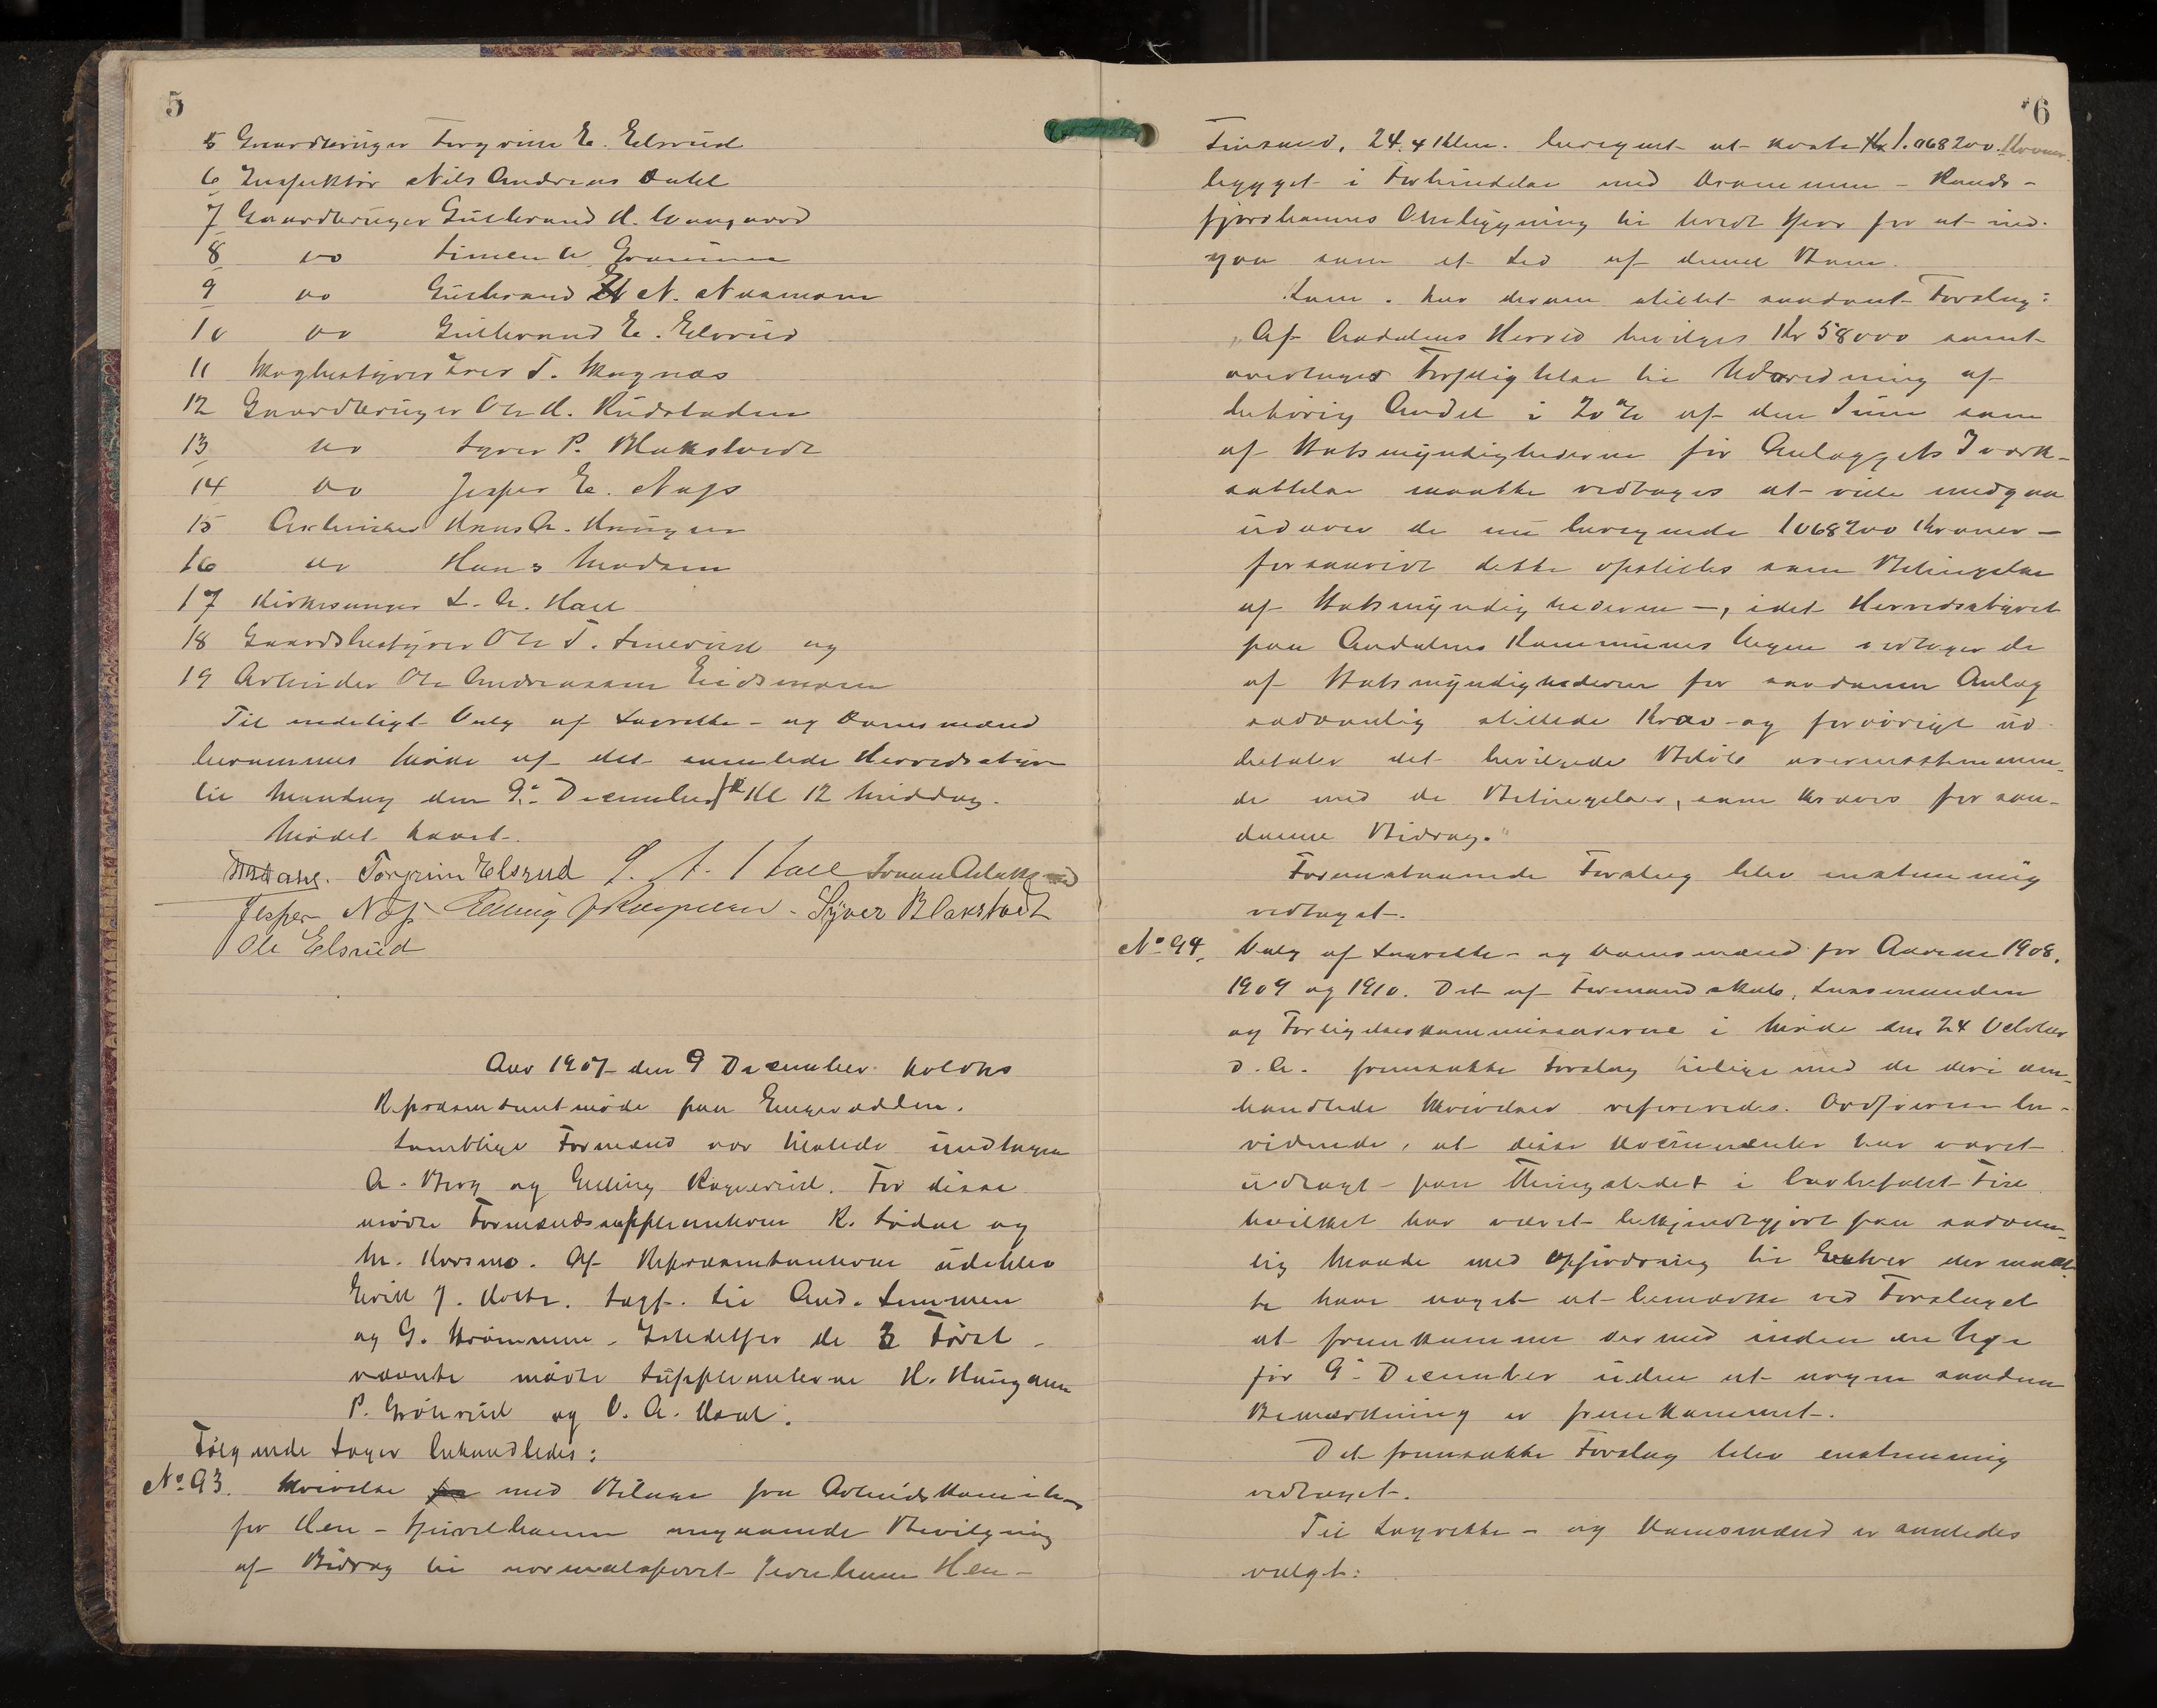 5
5 Gaardbruger Torgrim E. Elsrud
6 Inspektør Nils Andreas Dahl
7 Gaardbruger Gulbrand H.
8 do Simen A.
9 do Gulbrand N. Naamoen
10 do Gulbrand E. Elsrud
11 Skogbestyrer Iver T. Skagnæs
12 Gaardbruger Ole H. Rudstaden
13 do Syver P. Blakstvedt
14 do Jesper E. Næss
15 Arbeider Hans A. Haugen
16 do Hans Madsen
17 Kirkesanger L. A. Hall
18 Gaardsbestyrer Ole T. og
19 Arbeider Ole Andreassen Eidsmoen
Til endeligt Valg af Lagrette- og Domsmænd
berammes Møde af det samlede Herredsstyre
til Mandag den 9de December Kl 12 Middag.
Mødet hævet.
Torgrim Elsrud L. A. Hall
Jesper Næss Elling J Syver Blakstvedt
Ole Elsrud
Aar 1907 den 9 December holdtes
Repræsentantmøde paa
Samtlige Formænd var tilstede undtagen
A. Berg og Elling For disse
mødte Formandssuppleanterne K. og
M. Korsmo. Af Repræsentanterne udeblev
Eirik J. Holte. Lagf. til And.
og G. Istedetfor de 3 Først-
nævnte mødte Suppleanterne H. Haugerud
P. og O. A.
Følgende Sager behandledes:
No 93. Skrivelse med Bilage fra Arbeidskomiteen
for Hen - angaaende Bevilgning
af Bidrag til normalsporet Jernbane Hen-
6
24.4 Klm. beregnet at koste 1.068200 Kroner
bygget i Forbindelse med Drammen - Rands-
fjordbanens Ombygning til bredt Spor for at ind-
gaa som et Led af denne Bane.
Kom. har derom stillet saadant Forslag:
„Af Aadalens Herred bevilges Kr 58000 samt
overtages Forpligtelse til Udredning af
behørig Andel i 20% af den Sum som
af Statsmyndighederne før Anlæggets Iværk-
sættelse maatte vedtages at ville medgaa
udover de nu beregnede 1068200 Kroner -
forsaavidt dette opstilles som Betingelse
af Statsmyndighederne -, idet Herredsstyret
paa Aadalens Kommunes Vegne vedtager de
af Statsmyndighederne for saadanne Anlæg
sædvanlig stillede Krav og forøvrigt ud-
betaler det bevilgede Beløb overensstemmen-
de med de Betingelser, som kræves for saa-
danne Bidrag."
Foranstaaende Forslag blev enstemmig
vedtaget.
No 94. Valg af Lagrette- og Domsmænd for Aarene 1908.
1909 og 1910. Det af Formandskab, Lensmanden
og Forligelseskommissærerne i Møde den 24 October
d. A. fremsatte Forslag tillige med de deri om-
handlede Skrivelser refereredes. Ordføreren be-
vidnede, at disse Documenter har været
udlagt paa Thingstedet i lovbefalet Tid
hvilket har været bekjendtgjort paa sædvan-
lig Maade med Opfordring til Enhver der maat-
te have noget at bemærke ved Forslaget
at fremkomme dermed inden en Uge
før 9de December uden at nogen saadan
Bemærkning er fremkommet.
Det fremsatte Forslag blev enstemmig
vedtaget.
Til Lagrette- og Domsmænd er saaledes
valgt: